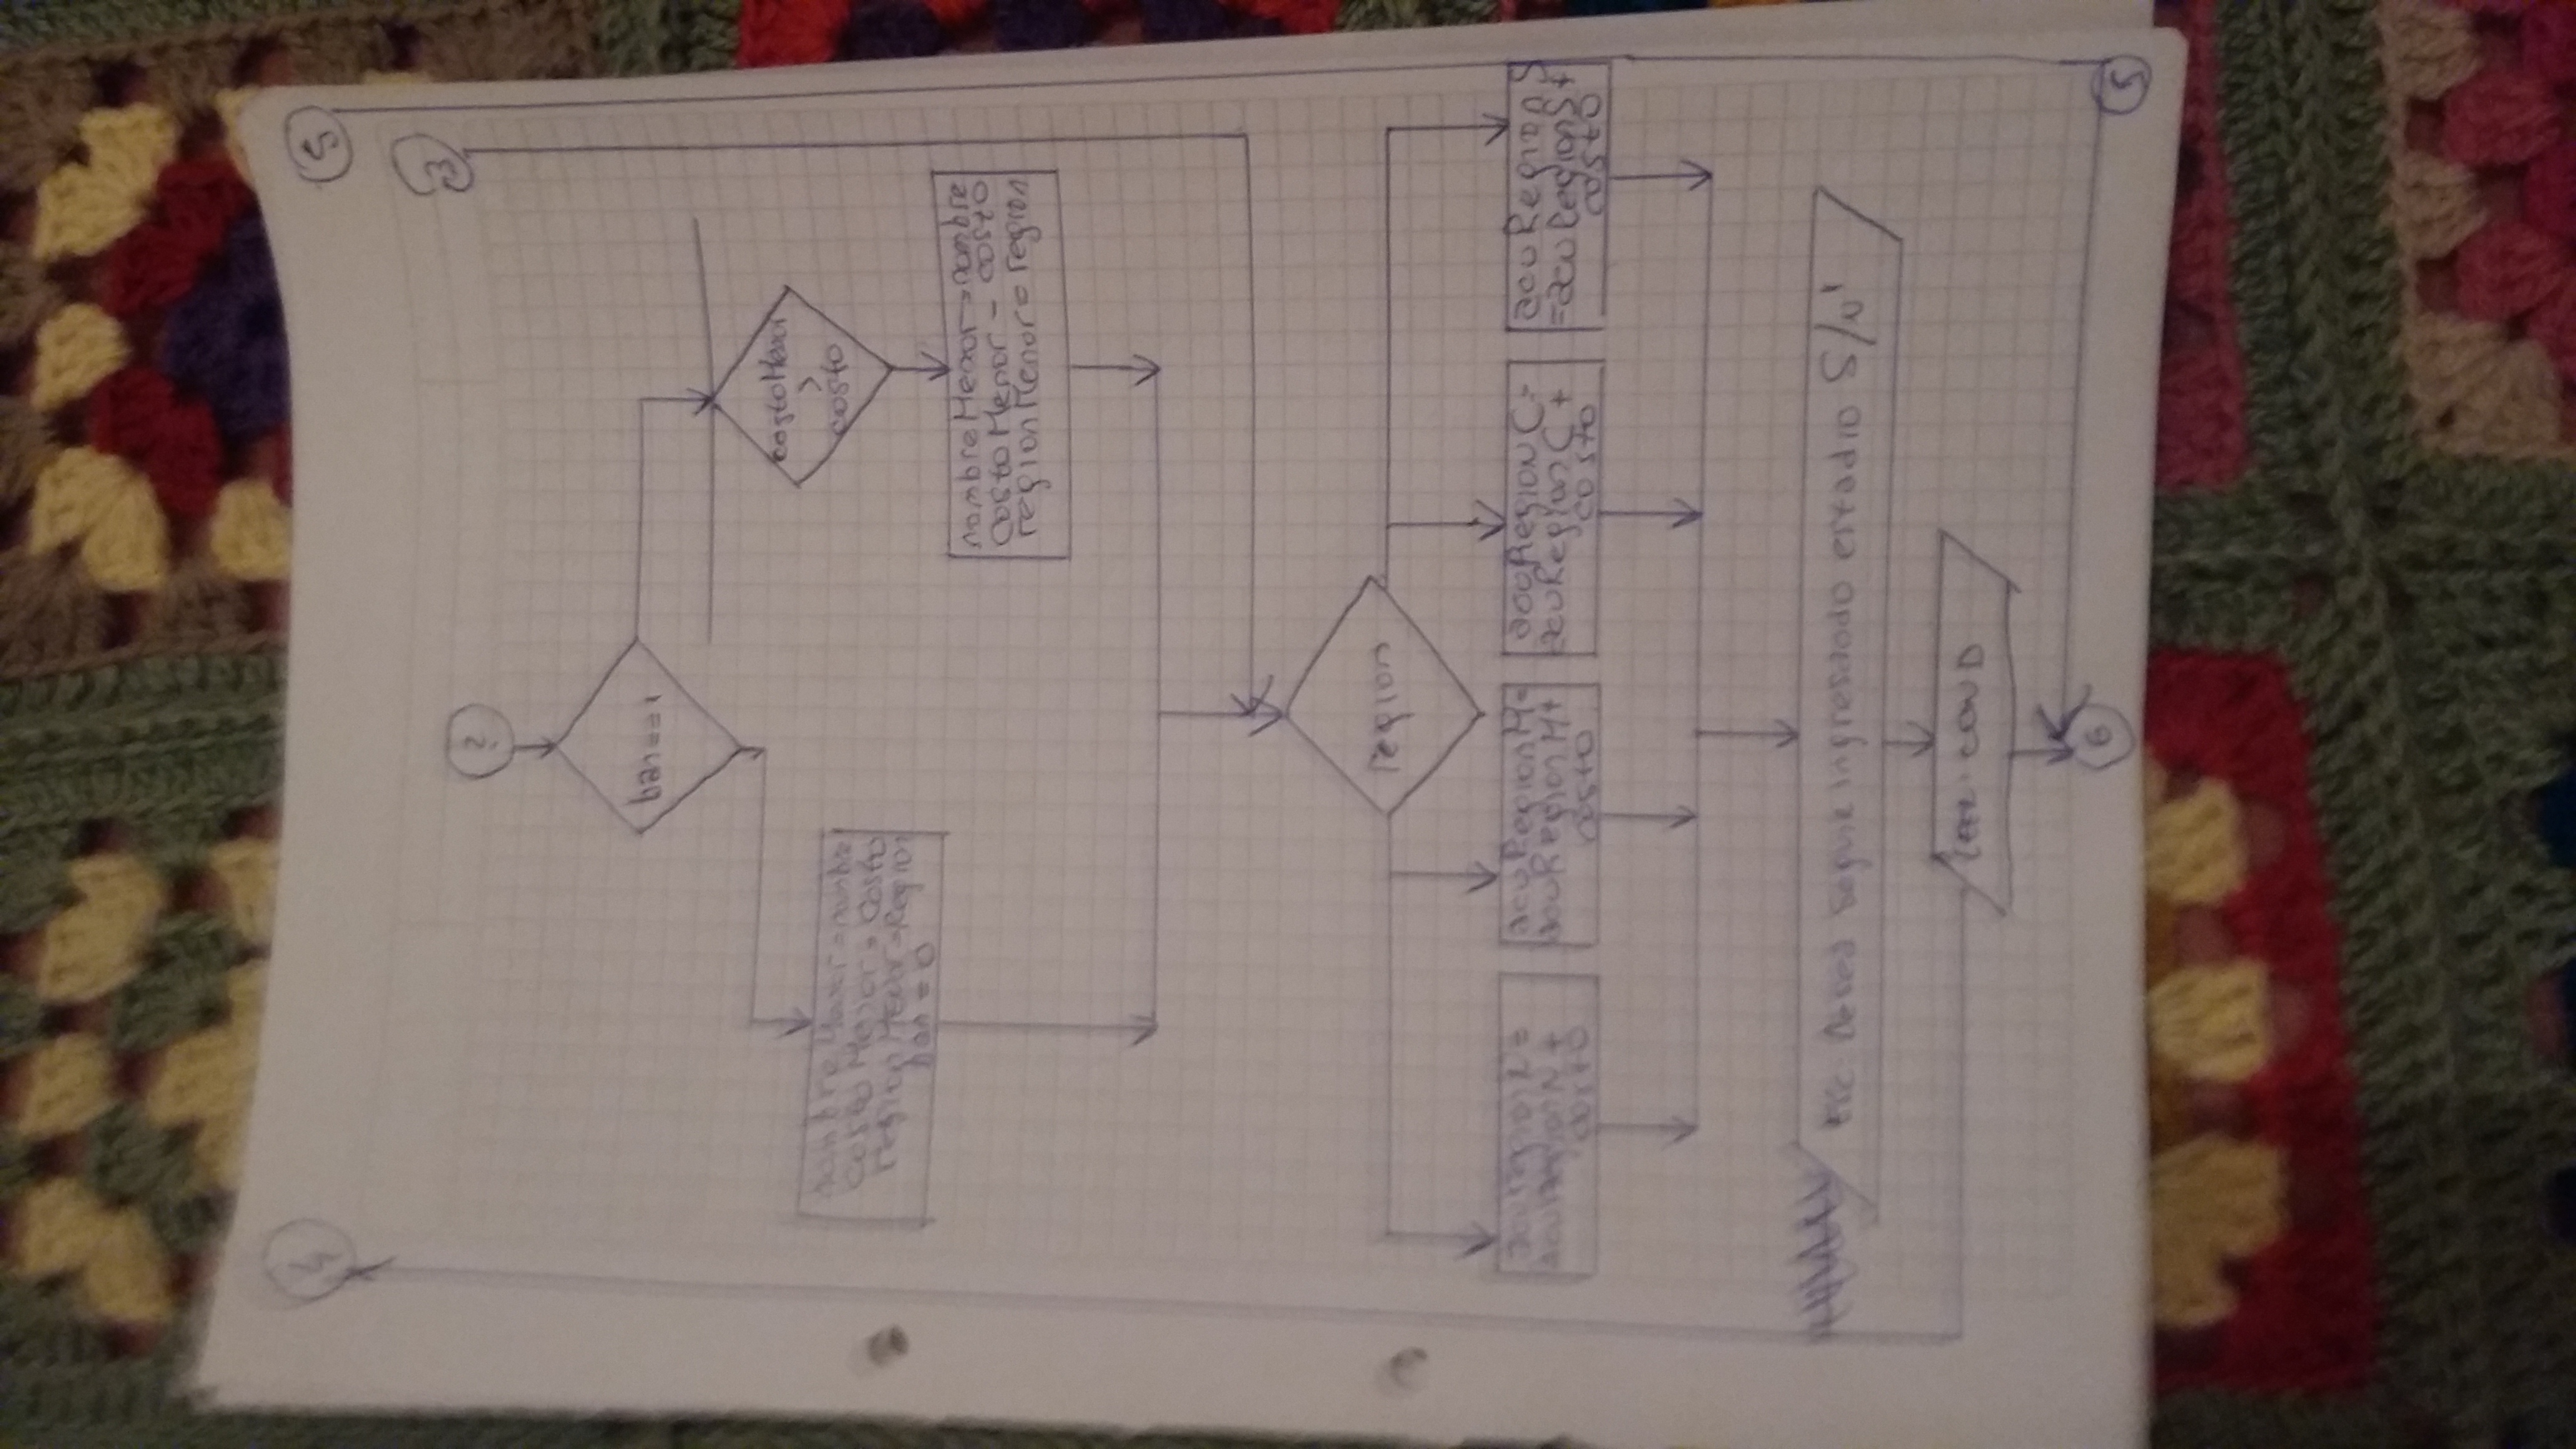 4
5
3
2
ban==1
costoMenor
>
costo
nombreMenor=nombre
costoMenor=costo
regionMenor=Region
ban=0
nombreMenor=nombre
costoMenor-costo
regionMenor=region
region
acuRegionN=
acuRegionN+
costo
acuRegionM=
acuRegionM+
costo
acuRegionC=
acuRegionC+
costo
acuRegionS
=acuRegionS+
costo
Desea seguir ingresando estadio S/N'
COND
6
5